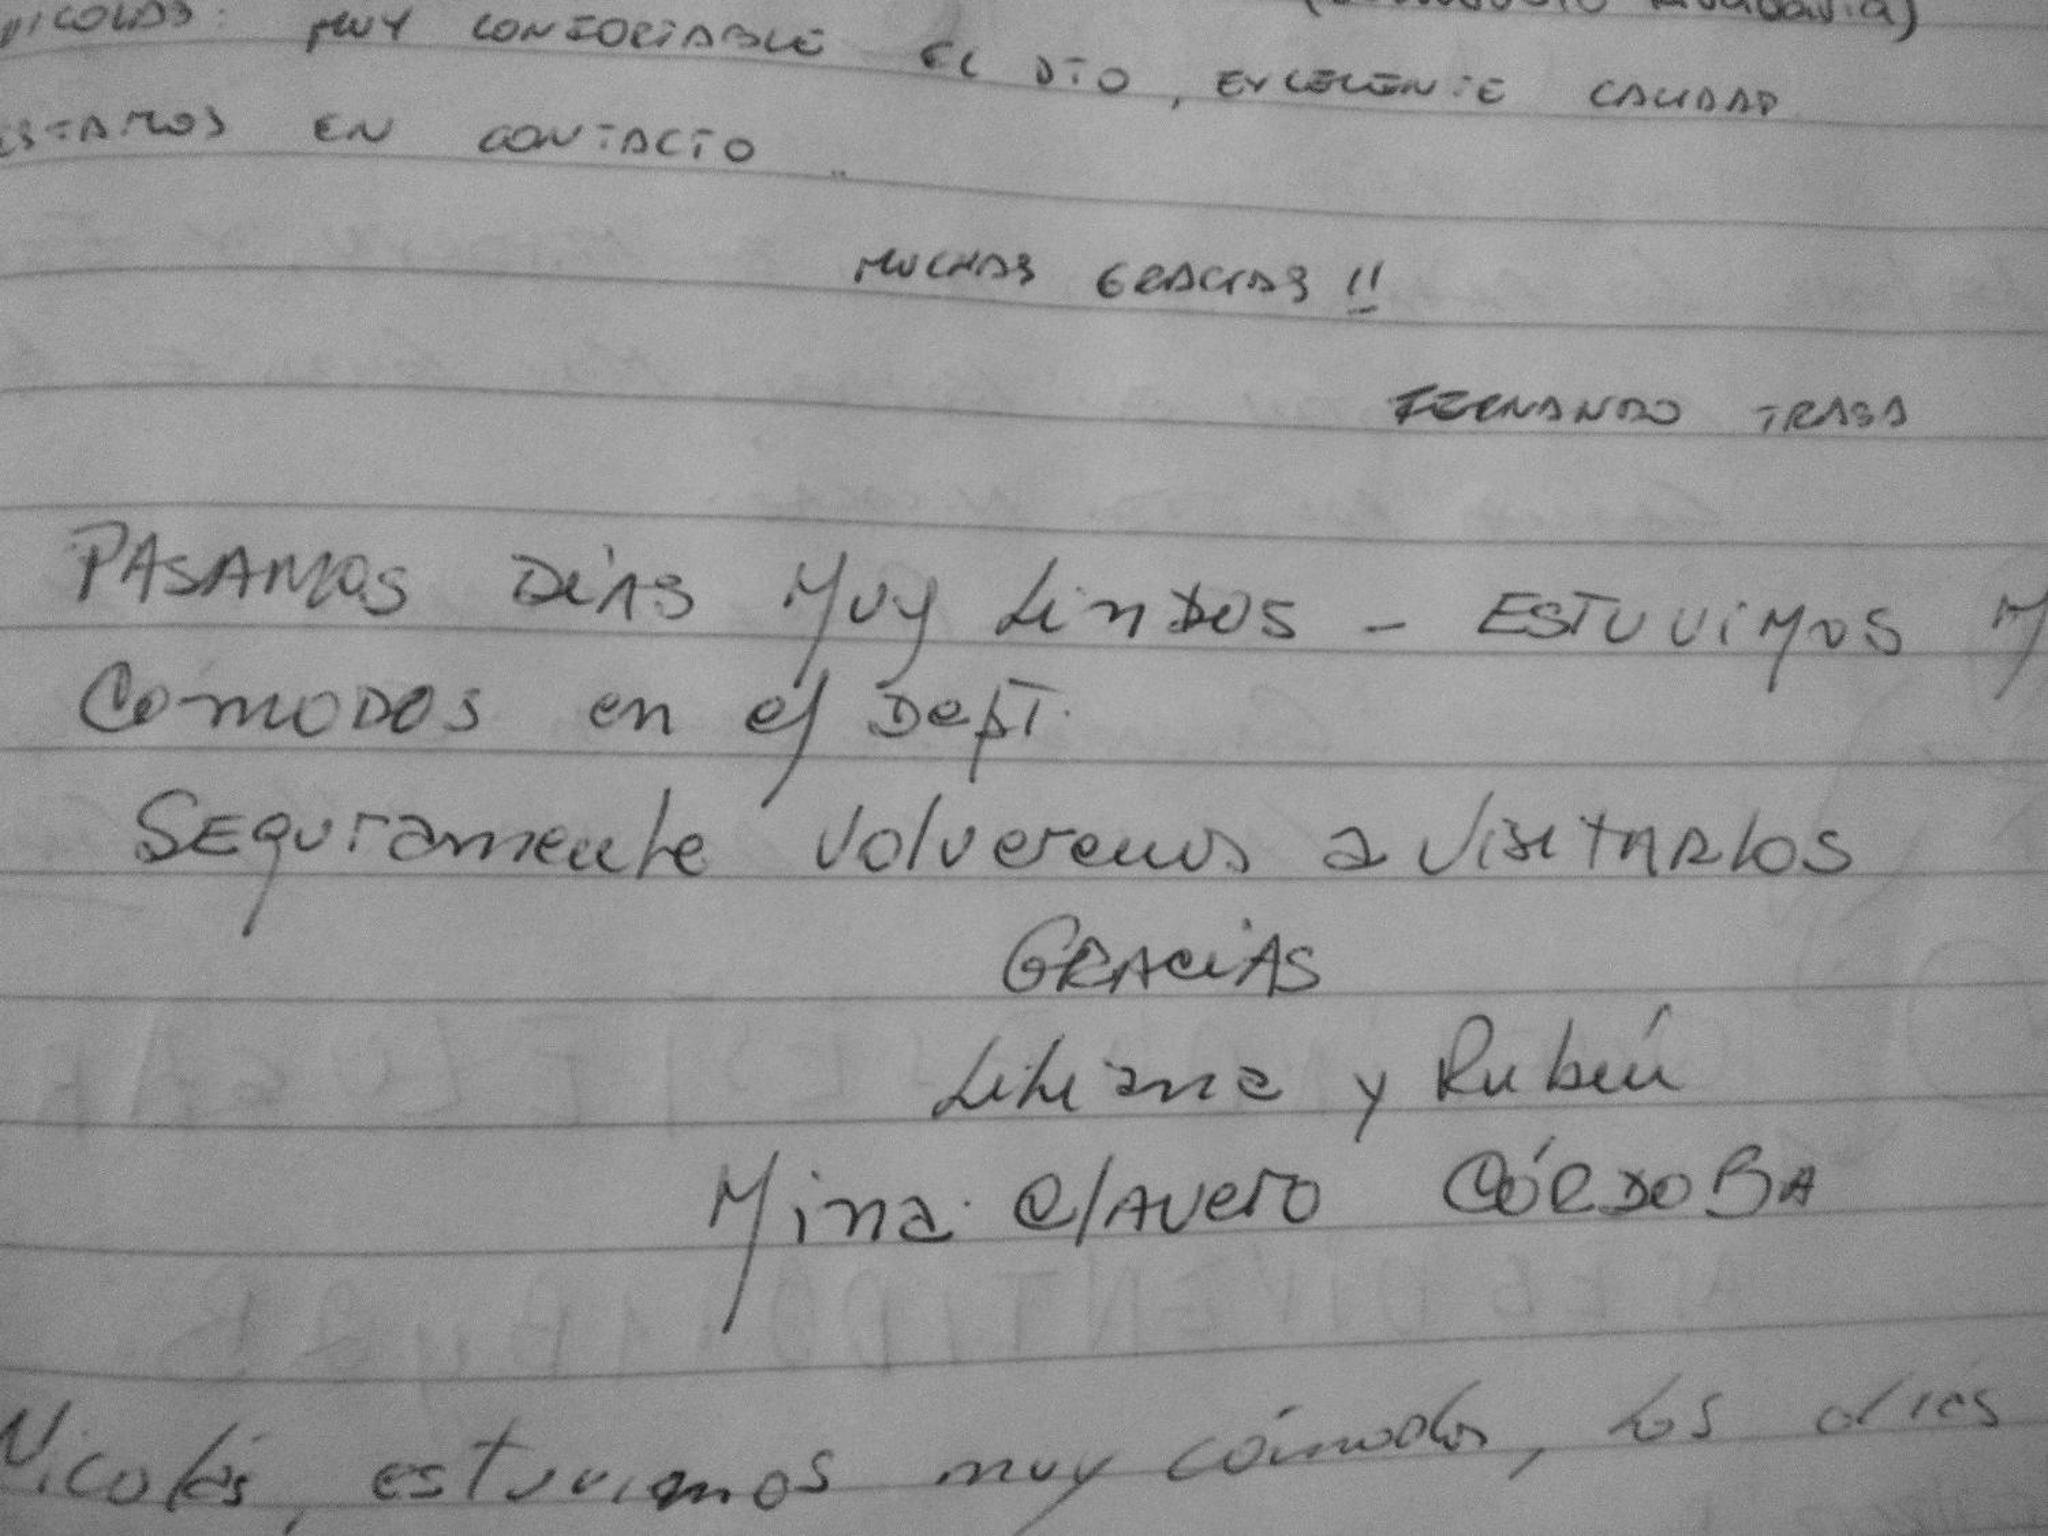 Rivadavia)
NICOLAS: MUY CONFORTABLE EL DTO, EXCELENTE CALIDAD
ESTAMOS EN CONTACTO..
MUCHAS GRACIAS !!
FERNANDO TRABA
PASAMOS DíAS MUY LinDOS - ESTUViMOS M
COmODOS en el DepT.
SEguramente volveremos a VisiTARlos
GRACiAS
Liliana y Rubén
Mina ClAvero CÓRDOBA
Nicolás, estuvimos muy cómodos, los días